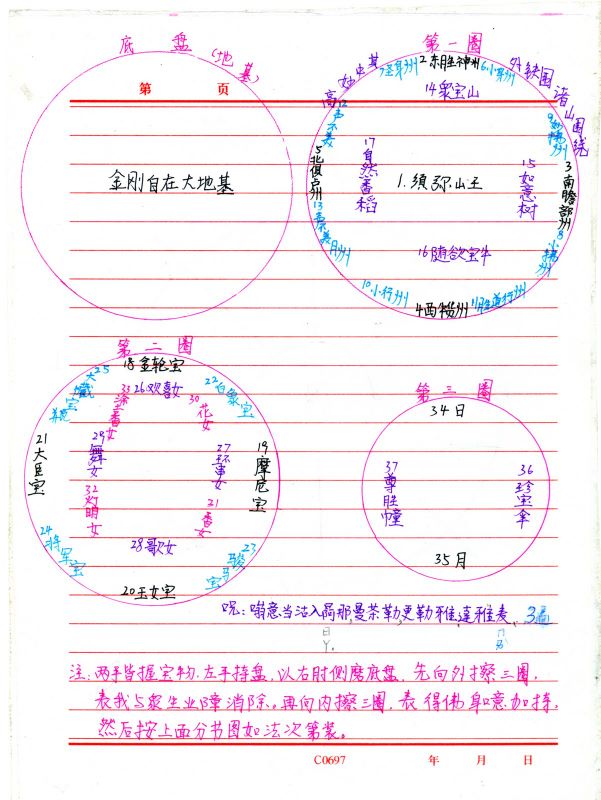 底盘(地基)
第 页
金刚自在大地基
第一圈
2东胜神州
6.小身州
14众宝山
17自然香稻
5北俱卢州
1.须弥山王
15如意树
3南瞻部州
16随欲宝牛
10.小行州
4西牛货州
11胜道行州
第二圈
18金轮宝
26欢喜女
22白象宝
33涂香女
30花女
21大臣宝
29舞女
27环女
19摩尼宝
32灯明女
31香女
24将军宝
28歌女
23骏马宝
20玉女宝
第三圈
34日
37尊胜幢
36珍宝伞
35月
呪:嗡意当沽入
那曼荼勒更勒雅達雅麦 3遍
注:两手皆握宝物.左手持盘,以右肘侧磨底盘.先向外擦三圈,
表我与众生业障消除。再向内擦三圈,表得佛身意加持,
然后按上面分书图如法次第装。
C0697
年 月 日